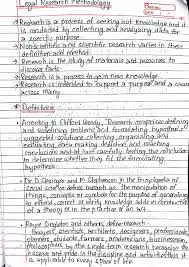 Legal Research Methodology
Research is a process of seeking out knowledge and it
is conducted by collecting and analysing data for
a specific purpose
Non scientific and scientific research varies in these
definition and method
Research is the study of materials and sources to
discover facts
Research is a process to gain new knowledge
Research is intended to support a purpose and a cause
among many
Definitions
According to Clifford Woody, "Research comprises defining
and redefining problems and formulating hypothesis,
suggested solutions collecting, organising and
evaluating data making deduction and reaching
conclusions and at last carefully testing the conclusion
to determine whether they fit the formulating
hypothesis.
Dr. D. Slesinger and M. Stephenson in the Encyclopedia of
Social science define research as the manipulation of
things, concepts or symbols for the purpose of generalising
to extend, correct or verify knowledge aids in construction
of a theory or in the practice of an art.
and others define research
scientists, architects, designers, professionals
planners,
in the wide term research is
applicable to every space of